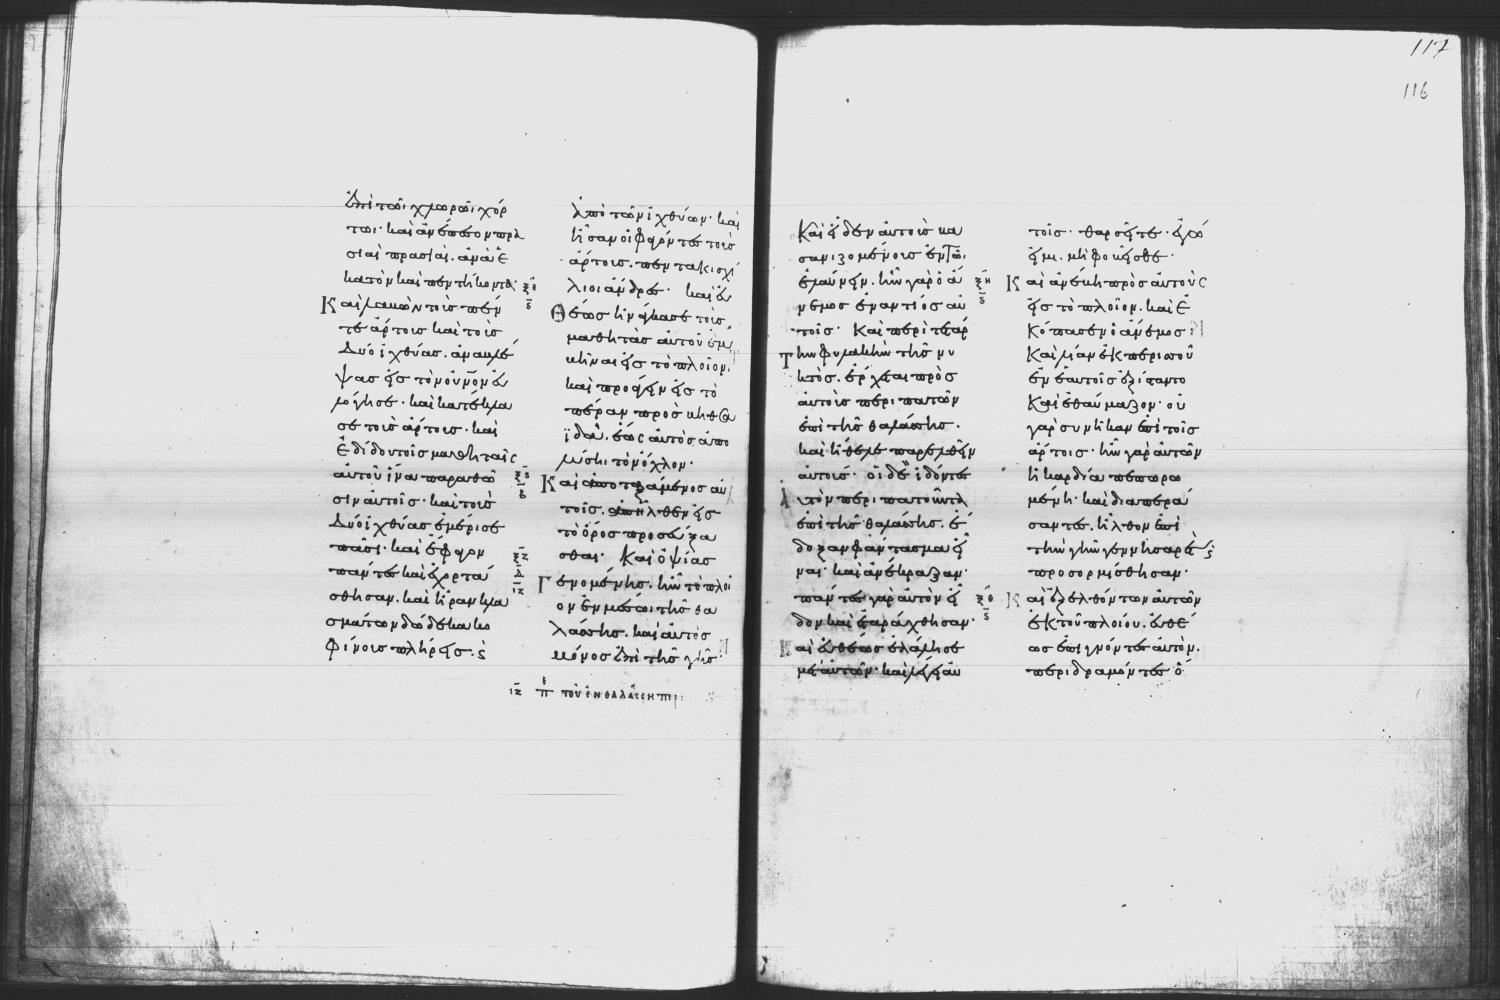 ἐπὶ τῶι χλωρῶι χόρ
τωι· καὶ ἀνέπεσον πρα
σιαὶ πρασιαί· ἀνὰ ἑ
κατὸν καὶ πεντήκοντα·
Καὶ λαβὼν τοὺς πέν
τε ἄρτους καὶ τοὺς
δύο ἰχθύας· ἀναβλέ
ψας εἰς τὸν οὐνον εὐ
λόγησε· καὶ κατέκλα
σε τοὺς ἄρτους· καὶ
ἐδίδου τοῖς μαθηταῖς
αὐτοῦ ἵνα παραθῶ
σιν αὐτοῖς· καὶ τοὺς
δύο ἰχθύας ἐμέρισε
πᾶσι· καὶ ἔφαγον
πάντες καὶ ἐχορτά
σθησαν· καὶ ἦραν κλα
σμάτων δώδεκα κο
φίνους πλήρεις·
ἀπὸ τῶν ἰχθύων· καὶ
ἦσαν οἱ φαγόντες τοὺς
ἄρτους· πεντακισχί
λιοι ἄνδρες· καὶ εὐ
θέως ἠνάγκασε τοὺς
μαθητὰς αὐτοῦ ἐμ
βῆναι εἰς τὸ πλοῖον·
καὶ προάγειν εἰς τὸ
πέραν πρὸς βηθσα
ϊδάν· ἕως αὐτὸς ἀπο
λύσῃ τὸν ὄχλον·
Καὶ ἀποταξάμενος αὐ
τοῖς· ἀπῆλθεν εἰς
τὸ ὄρος προσεύξα
σθαι· Καὶ ὀψίας
Γενομένης· ἦν τὸ πλοῖ
ον ἐν μέσωι τῆς θα
λάσσης· καὶ αὐτὸς
μόνος ἐπὶ τῆς γῆς·
ιζ π τοῦ ἐν θαλάσση περι
117
116
Καὶ εἶδεν αὐτοὺς βα
σανιζομένους ἐν τῶι
ἐλαύνειν· ἦν γὰρ ὁ ἄ
νεμος ἐναντίος αὐ
τοῖς· Καὶ περὶ τετάρ
Την φυλακὴν τῆς νυ
κτός· ἔρχεται πρὸς
αὐτοὺς περιπατῶν
ἐπὶ τῆς θαλάσσης·
καὶ ἤθελε παρελθεῖν
αὐτούς· οἱ δὲ ἰδόντες
αὐτὸν περιπατοῦντα
ἐπὶ τῆς θαλάσσης· ἔ
δοξαν φάντασμα εἶ
ναι· καὶ ἀνέκραξαν·
πάντες γὰρ αὐτὸν εἶ
δον καὶ ἐταράχθησαν·
Καὶ εὐθέως ἐλάλησε
μετ' αὐτῶν· καὶ λέγει αὐ
τοῖς· θαρσεῖτε· ἐγώ
εἰμι· μὴ φοβεῖσθε·
Καὶ ἀνέβη πρὸς αὐτοὺς
εἰς τὸ πλοῖον· καὶ ἐ
κόπασεν ὁ ἄνεμος·
Καὶ λίαν ἐκ περισσοῦ
ἐν ἑαυτοῖς ἐξίσταντο
Καὶ ἐθαύμαζον· οὐ
γὰρ συνῆκαν ἐπὶ τοῖς
ἄρτοις· ἦν γὰρ αὐτῶν
ἡ καρδία πεπωρω
μένη· καὶ διαπερά
σαντες· ἦλθον ἐπὶ
τὴν γῆν γεννησαρέτ
προσορμίσθησαν·
Καὶ ἐξελθόντων αὐτῶν
ἐκ τοῦ πλοίου· εὐθέ
ως ἐπιγνόντες αὐτόν·
περιδραμόντες ὅ